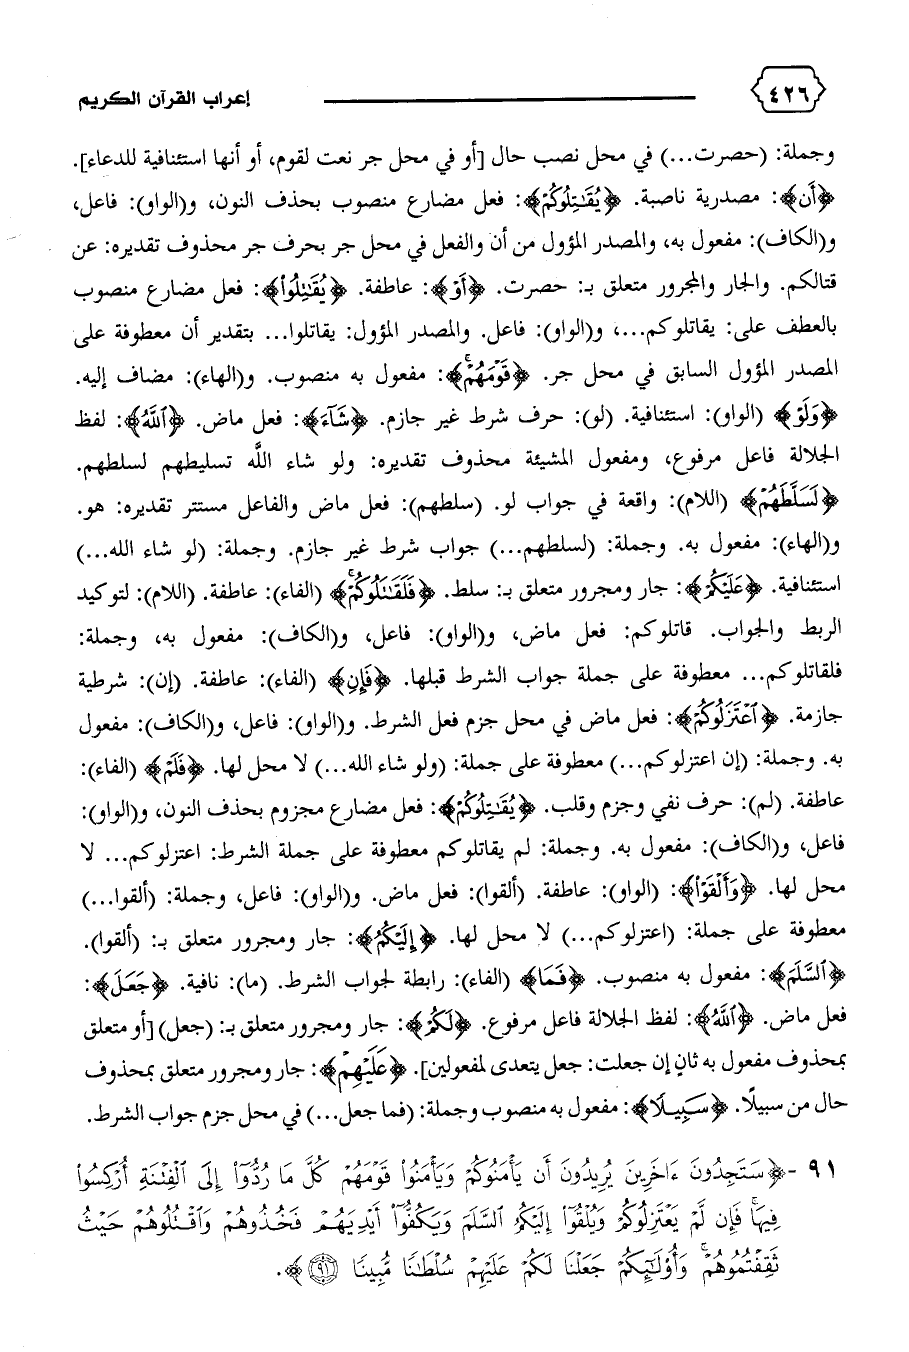 ٤٢٦ إعراب القرآن الكريم
وجملة: (حصرت...) في محل نصب حال [أو في محل جر نعت لقوم، أو أنها استئنافية للدعاء].
﴿أَن﴾: مصدرية ناصبة. ﴿يُقَٰتِلُوكُمۡ﴾: فعل مضارع منصوب بحذف النون، و(الواو): فاعل،
و(الكاف): مفعول به، والمصدر المؤول من أن والفعل في محل جر بحرف جر محذوف تقديره: عن
قتالكم. والجار والمجرور متعلق بـ: حصرت. ﴿أَوۡ﴾: عاطفة. ﴿يُقَٰتِلُواْ﴾: فعل مضارع منصوب
بالعطف على: يقاتلوكم...، و(الواو): فاعل. والمصدر المؤول: يقاتلوا... بتقدير أن معطوفة على
المصدر المؤول السابق في محل جر. ﴿قَوۡمَهُمۡۚ﴾: مفعول به منصوب. و(الهاء): مضاف إليه.
﴿وَلَوۡ﴾ (الواو): استئنافية. (لو): حرف شرط غير جازم. ﴿شَآءَ﴾: فعل ماض. ﴿ٱللَّهُ﴾: لفظ
الجلالة فاعل مرفوع، ومفعول المشيئة محذوف تقديره: ولو شاء اللَّه تسليطهم لسلطهم.
﴿لَسَلَّطَهُمۡ﴾ (اللام): واقعة في جواب لو. (سلطهم): فعل ماض والفاعل مستتر تقديره: هو.
و(الهاء): مفعول به. وجملة: (لسلطهم...) جواب شرط غير جازم. وجملة: (لو شاء الله...)
استئنافية. ﴿عَلَيۡكُمۡ﴾: جار ومجرور متعلق بـ: سلط. ﴿فَلَقَٰتَلُوكُمۡۚ﴾ (الفاء): عاطفة. (اللام): لتوكيد
الربط والجواب. قاتلوكم: فعل ماض، و(الواو): فاعل، و(الكاف): مفعول به، وجملة:
فلقاتلوكم... معطوفة على جملة جواب الشرط قبلها. ﴿فَإِنِ﴾ (الفاء): عاطفة. (إن): شرطية
جازمة. ﴿ٱعۡتَزَلُوكُمۡ﴾: فعل ماض في محل جزم فعل الشرط. و(الواو): فاعل، و(الكاف): مفعول
به. وجملة: (إن اعتزلوكم...) معطوفة على جملة: (ولو شاء الله...) لا محل لها. ﴿فَلَمۡ﴾ (الفاء):
عاطفة. (لم): حرف نفي وجزم وقلب. ﴿يُقَٰتِلُوكُمۡ﴾: فعل مضارع مجزوم بحذف النون، و(الواو):
فاعل، و(الكاف): مفعول به. وجملة: لم يقاتلوكم معطوفة على جملة الشرط: اعتزلوكم... لا
محل لها. ﴿وَأَلۡقَوۡاْ﴾: (الواو): عاطفة. (ألقوا): فعل ماض. و(الواو): فاعل، وجملة: (ألقوا...)
معطوفة على جملة: (اعتزلوكم...) لا محل لها. ﴿إِلَيۡكُمُ﴾: جار ومجرور متعلق بـ: (ألقوا).
﴿ٱلسَّلَمَ﴾: مفعول به منصوب. ﴿فَمَا﴾ (الفاء): رابطة لجواب الشرط. (ما): نافية. ﴿جَعَلَ﴾:
فعل ماض. ﴿ٱللَّهُ﴾: لفظ الجلالة فاعل مرفوع. ﴿لَكُمۡ﴾: جار ومجرور متعلق بـ: (جعل) [أو متعلق
بمحذوف مفعول به ثانٍ إن جعلت: جعل يتعدى لمفعولين]. ﴿عَلَيۡهِمۡ﴾: جار ومجرور متعلق بمحذوف
حال من سبيلًا. ﴿سَبِيلًا﴾: مفعول به منصوب وجملة: (فما جعل...) في محل جزم جواب الشرط.
٩١ - ﴿سَتَجِدُونَ ءَاخَرِينَ يُرِيدُونَ أَن يَأۡمَنُوكُمۡ وَيَأۡمَنُواْ قَوۡمَهُمۡ كُلَّ مَا رُدُّوٓاْ إِلَى ٱلۡفِتۡنَةِ أُرۡكِسُواْ
فِيهَاۚ فَإِن لَّمۡ يَعۡتَزِلُوكُمۡ وَيُلۡقُوٓاْ إِلَيۡكُمُ ٱلسَّلَمَ وَيَكُفُّوٓاْ أَيۡدِيَهُمۡ فَخُذُوهُمۡ وَٱقۡتُلُوهُمۡ حَيۡثُ
ثَقِفۡتُمُوهُمۡۚ وَأُوْلَٰٓئِكُمۡ جَعَلۡنَا لَكُمۡ عَلَيۡهِمۡ سُلۡطَٰنٗا مُّبِينٗا ٩١﴾.